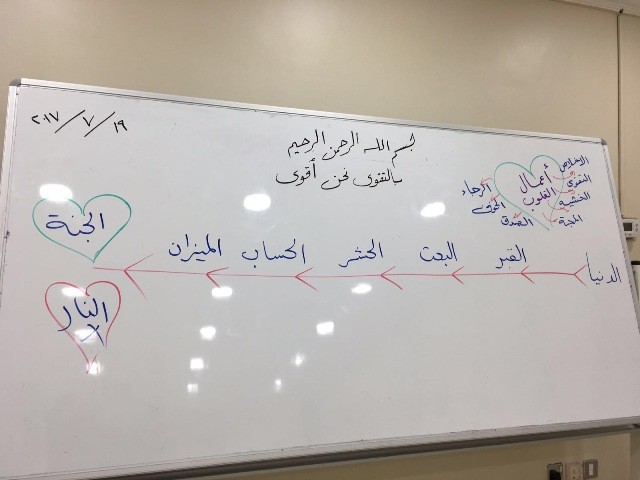 بسم الله الرحمن الرحيم
بالتقوى نحن أقوى
٢٠١٧/٧/١٩
أعمال القلوب
الاخلاص
التقوى
الخشية
المحبة
الرجاء
الخوف
الصدق
الدنيا
القبر
البعث
الحشر
الحساب
الميزان
الجنة
النار